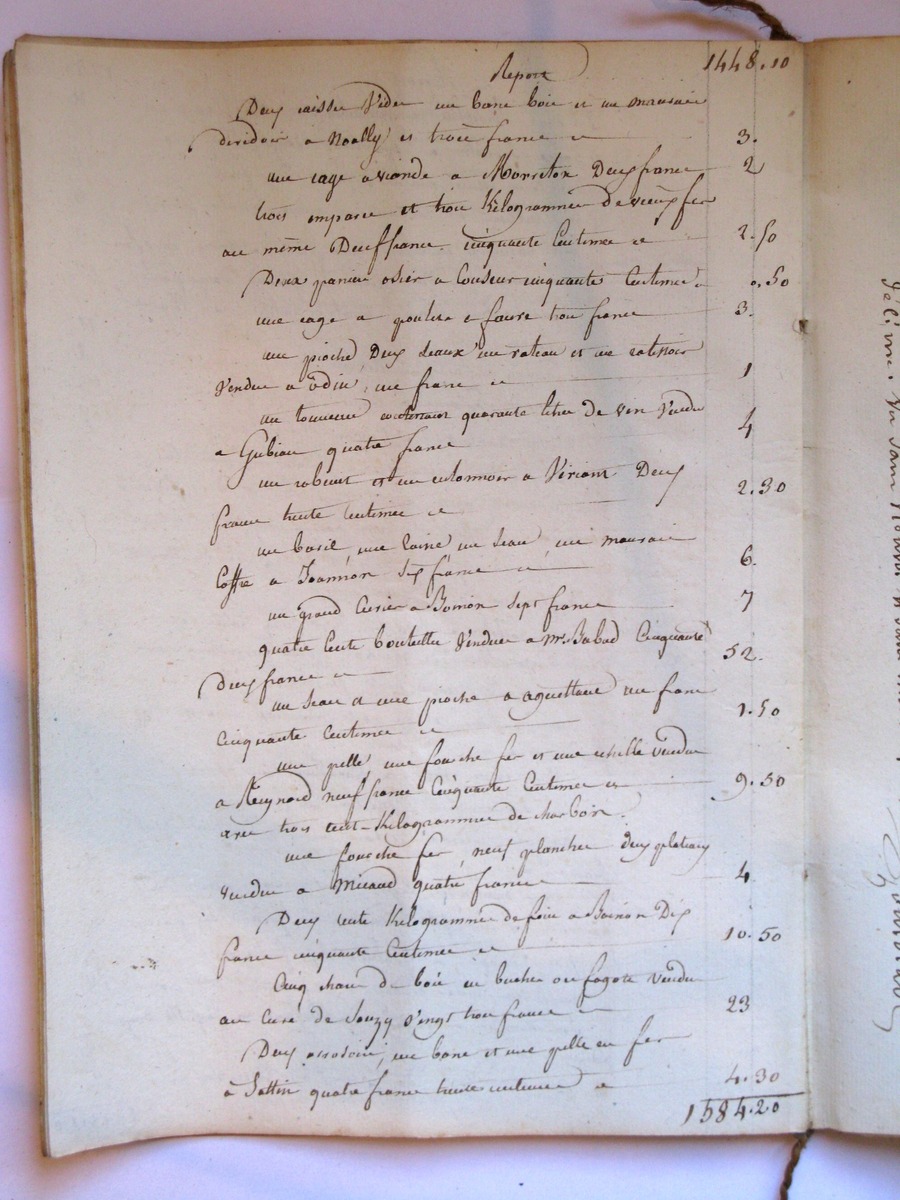 Report 1448.10
Deux caisses vides un banc bois et un mauvais
dividoir a Noally et trois francs ci 3.
une cage a viande a Marreton Deux francs 2
trois imparts et trois Kilogrammes de vieux fer
au même Deux francs cinquante Centimes ci 2.50
Deux paniers osier a Couleur cinquante Centimes ci 0.50
une cage a poulets a faure trois francs 3.
une pioche Deux seaux un rateau et un
Vendu a odin, un franc ci 1
un tonneau contenant quarante litres de vin vendu
a Gubian quatre francs 4
un robinet et un entonnoir a Viriant Deux
francs trente Centimes ci 2.30
un baril, une caisse un seau, un mauvais
Coffre a Joannon Six francs ci 6.
un grand Cuvier a Boinon Sept francs 7
quatre cents bouteilles Vendues a Mr. Babad Cinquante
Deux francs ci 52.
un seau et une pioche a aguettant un franc
Cinquante Centimes ci 1.50
une pelle, une fourche fer et une échelle vendu
a Reynard neuf francs Cinquante Centimes ci 9.50
avec trois cents Kilogrammes de charbon.
une fourche fer, neuf planches deux plateaux
vendu a Micaud quatre francs 4
Deux cents Kilogrammes de foin a Boinon Dix
francs cinquante Centimes ci 10.50
Cinq chars de bois en buches ou fagots vendu
au Curé de Souzy Vingt trois francs ci 23
Deux arrosoirs, un banc et une pelle en fer
à Sattin quatre francs trente centimes ci 4.30
1584.20